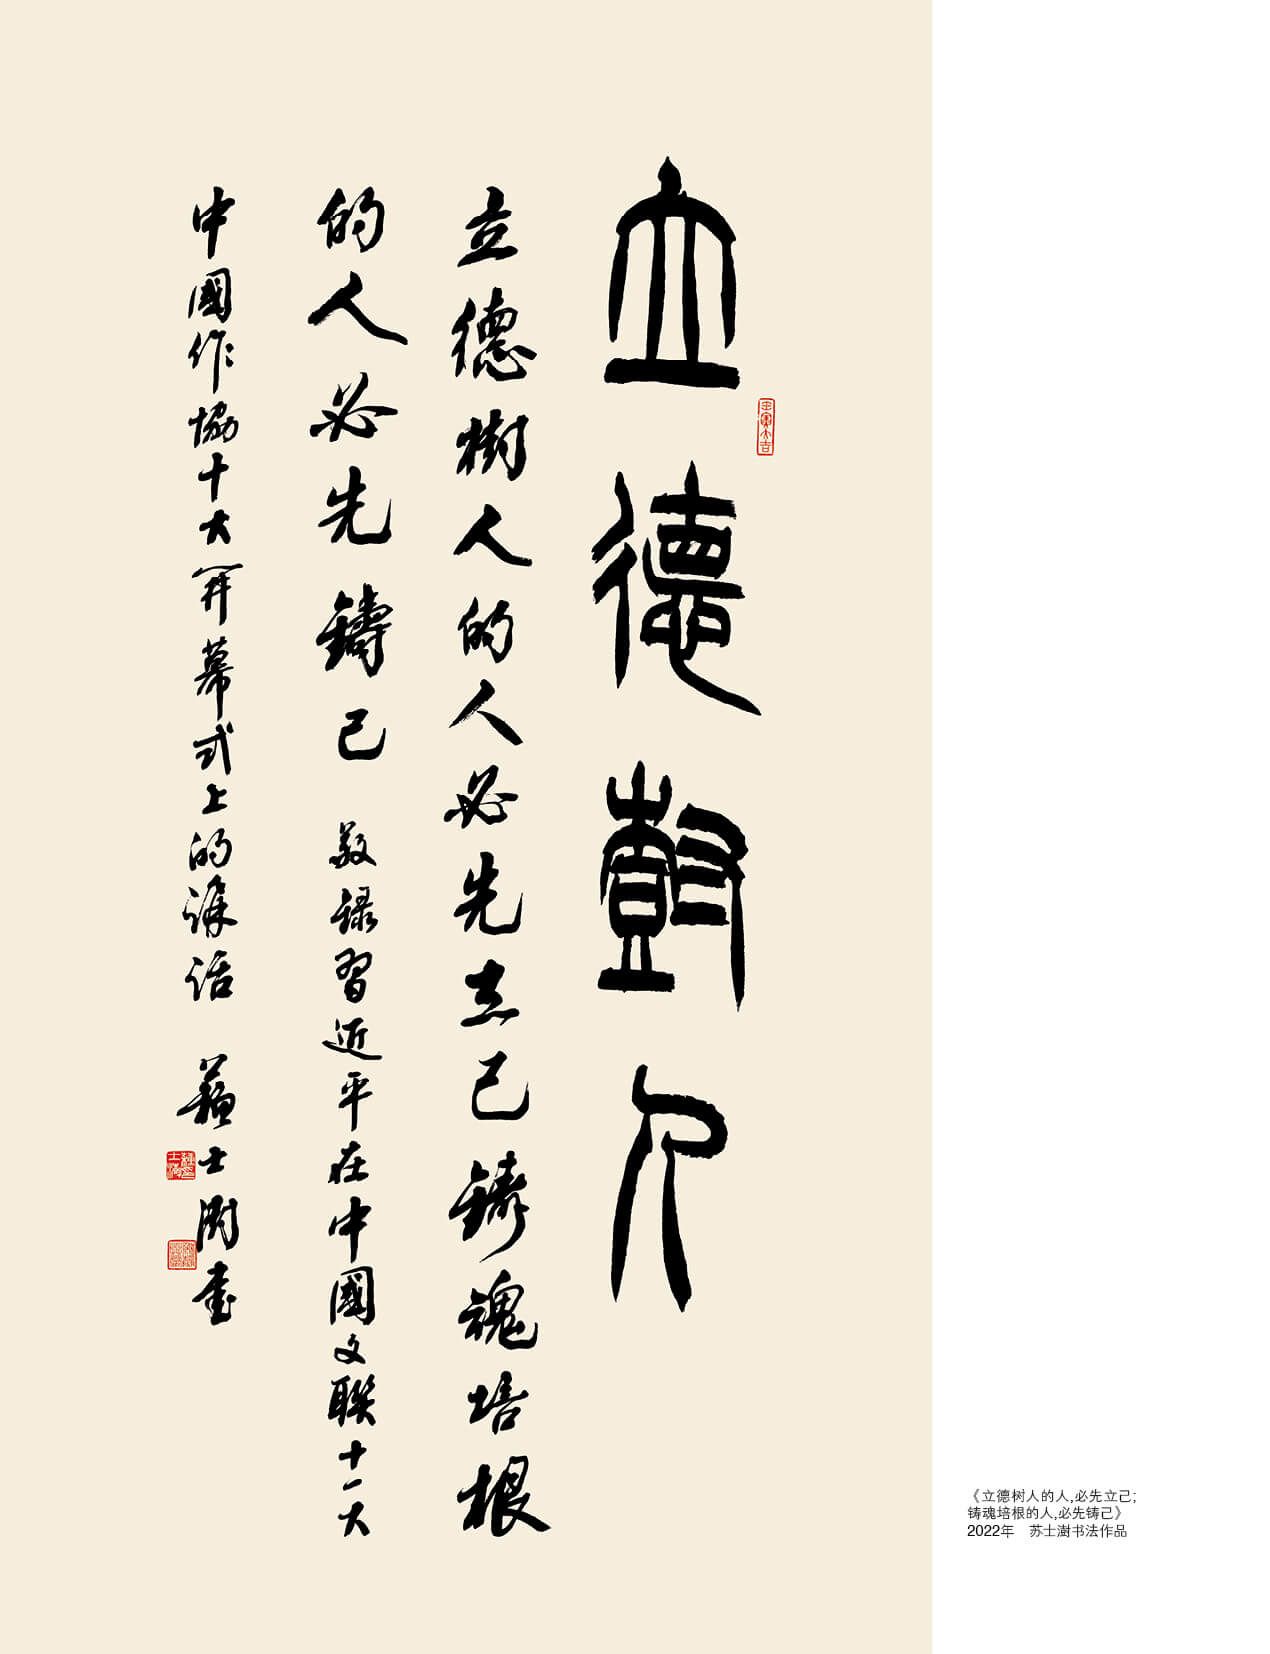 立德尌人
立德樹人的人必先立己鑄魂培根
的人必先鑄己 敬録習近平在中國文聯十一大
中國作協十大開幕式上的講話 蘇士澍書
《立德树人的人,必先立己;
铸魂培根的人,必先铸己》
2022年 苏士澍书法作品